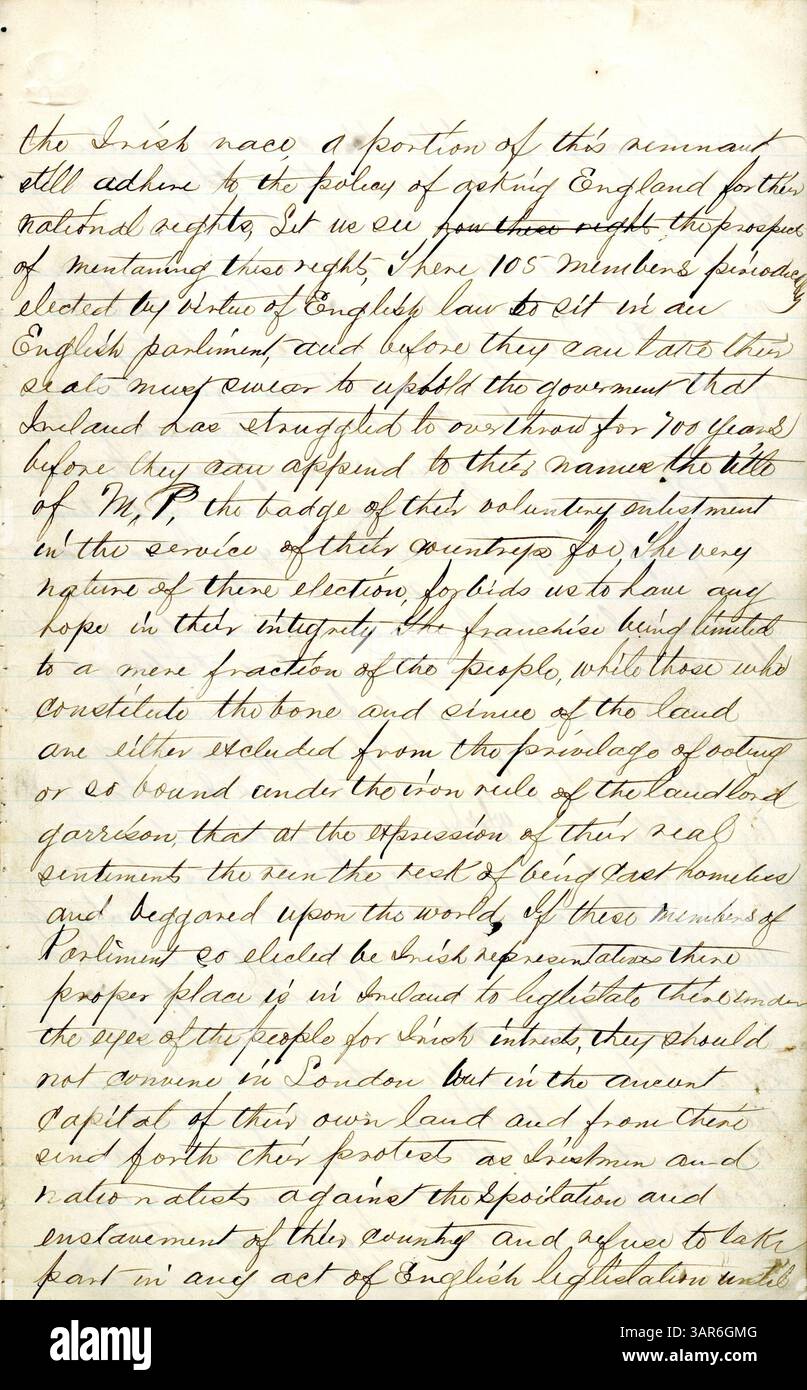 the Irish race, a portion of this remnant
still adhere to the policy of asking England for their
national rights, Let us see how these right the prospect
of mentaning these rights, There 105 members periodically
elected by virtue of English law to sit in an
English parliment, and before they can take their
seats must swear to uphold the goverment that
Ireland has struggled to overthrow for 700 years
before they can append to their names the title
of M,P, the badge of their voluntery enlistment
in the service of their countrys foe, The very
nature of there election, forbids us to have any
hope in their integrity The franchise being limited
to a mere fraction of the people, while those who
constitute the bone and sinue of the land
are either excluded from the privilage of voting
or so bound under the iron rule of the landlord
garrison, that at the expression of their real
sentiments the run the resk of being cast homeless
and beggared upon the world, If these members of
Parliment so elected be Irish representatives there
proper place is in Ireland to leglistate there under
the eyes of the people for Irish intrests, they should
not convene in London but in the ancent
capital of their own land and from there
send forth their protests as Irishmen and
nationatists against the spoilation and
enslavement of their country and refuse to take
part in any act of English leglistation until
alamy
Image ID: 3AR6GMG
www.alamy.com